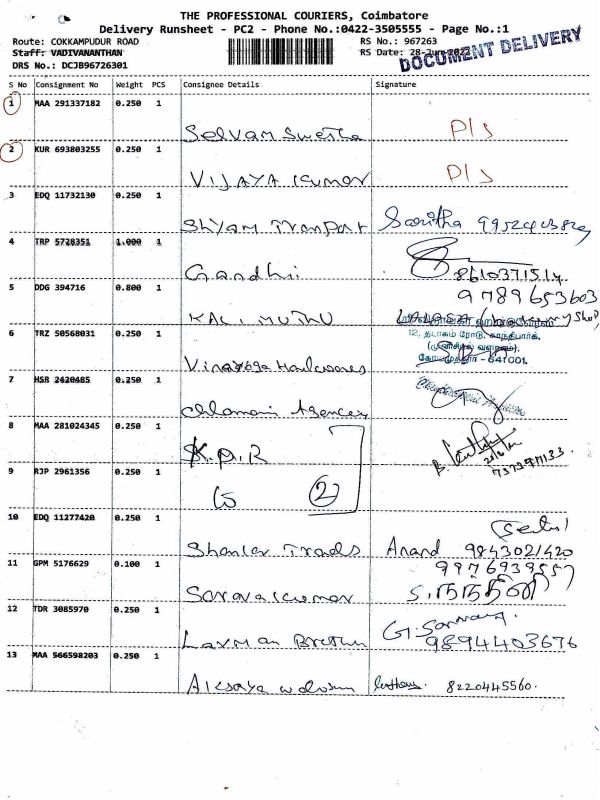 THE PROFESSIONAL COURIERS, Coimbatore
Delivery Runsheet - PC2 - Phone No.:0422-3505555 - Page No.:1
Route: COKKAMPUDUR ROAD RS No.: 967263
Staff: VADIVANANTHAN RS Date: 28-Jun-2022
DRS No.: DCJB96726301 DOCUMENT DELIVERY
S No Consignment No Weight PCS Consignee Details Signature
1 MAA 291337182 0.250 1
Selvam Swetha P/s
2 KUR 693803255 0.250 1
VIJAYA Kumar P/s
3 EDQ 11732130 0.250 1
Shyam Tranport
4 TRP 5728351 1.000 1
Gandhi 8610371517
5 DDG 394716 0.800 1 9789653603
KALIMUTHU
6 TRZ 50568031 0.250 1 12, தடாகம் ரோடு, காந்திபார்க்,
கோயமுத்தூர் - 641001.
Vinayaga Hardwares
7 HSR 2420485 0.250 1
Agencey
8 MAA 281024345 0.250 1
K.P.R
9 RJP 2961356 0.250 1
2
10 EDQ 11277420 0.250 1
Shanker Trads Anand 9843021420
11 GPM 5176629 0.100 1 9976939557
Saravakumar S. நந்தினி
12 TDR 3085970 0.250 1
Laxman Brothers 9894403676
13 MAA 566598203 0.250 1
Aksaya 8220445560.